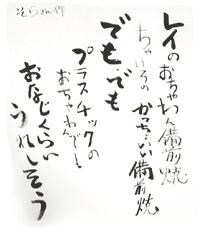 そらさん作
レイのおちゃわん備前焼
ちゃいろの かっちょいい備前焼
でもでも
プラスチックの
おちゃわんで！
おなじくらい
うれしそう